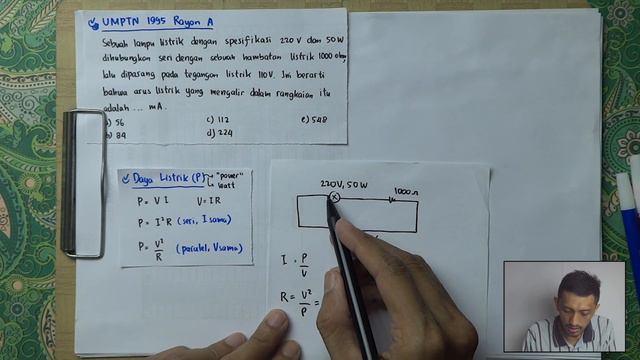 UMPTN 1995 Rayon A
Sebuah lampu listrik dengan spesifikasi 220 V dan 50 W
dihubungkan seri dengan sebuah hambatan listrik 1000 ohm,
lalu dipasang pada tegangan listrik 110V. Ini berarti
bahwa arus listrik yang mengalir dalam rangkaian itu
adalah ... mA.
a) 56 c) 112 e) 548
b) 84 d) 224
Daya Listrik (P) → "power"
watt
P = V I V = IR
P = I²R (seri, I sama)
P = V²/R (paralel, V sama)
220V, 50W
1000Ω
I = P/V
R = V²/P =